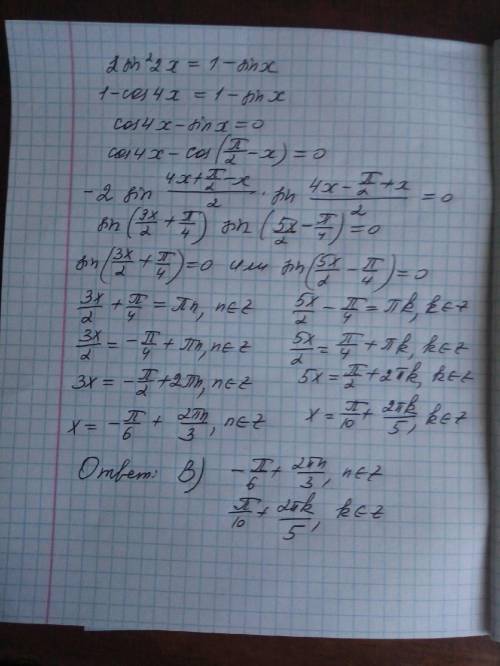 2sin²2x = 1 - sinx
1 - cos4x = 1 - sinx
cos4x - sinx = 0
cos4x - cos(π/2 - x) = 0
-2 sin (4x + π/2 - x)/2 · sin (4x - π/2 + x)/2 = 0
sin(3x/2 + π/4) sin(5x/2 - π/4) = 0
sin(3x/2 + π/4) = 0 или sin(5x/2 - π/4) = 0
3x/2 + π/4 = πn, n∈Z 5x/2 - π/4 = πk, k∈Z
3x/2 = -π/4 + πn, n∈Z 5x/2 = π/4 + πk, k∈Z
3x = -π/2 + 2πn, n∈Z 5x = π/2 + 2πk, k∈Z
x = -π/6 + 2πn/3, n∈Z x = π/10 + 2πk/5, k∈Z
Ответ: В) -π/6 + 2πn/3, n∈Z
π/10 + 2πk/5, k∈Z